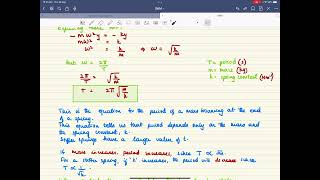 - mω²y = -ky
mω² = k
ω² = k/m ⇒ ω = √k/m
but ω = 2π/T
2π/T = √k/m
T = 2π √m/k
T = period (s)
m = mass (kg)
k = spring constant (Nm⁻¹)
This is the equation for the period of a mass moving at the end
of a spring.
This equation tells us that period depends only on the mass
and the spring constant, k.
Stiffer springs have a large value of k.
If mass increases, period increases since T ∝ √m.
For a stiffer spring, if 'k' increases, the period will decrease since
T ∝ 1/√k